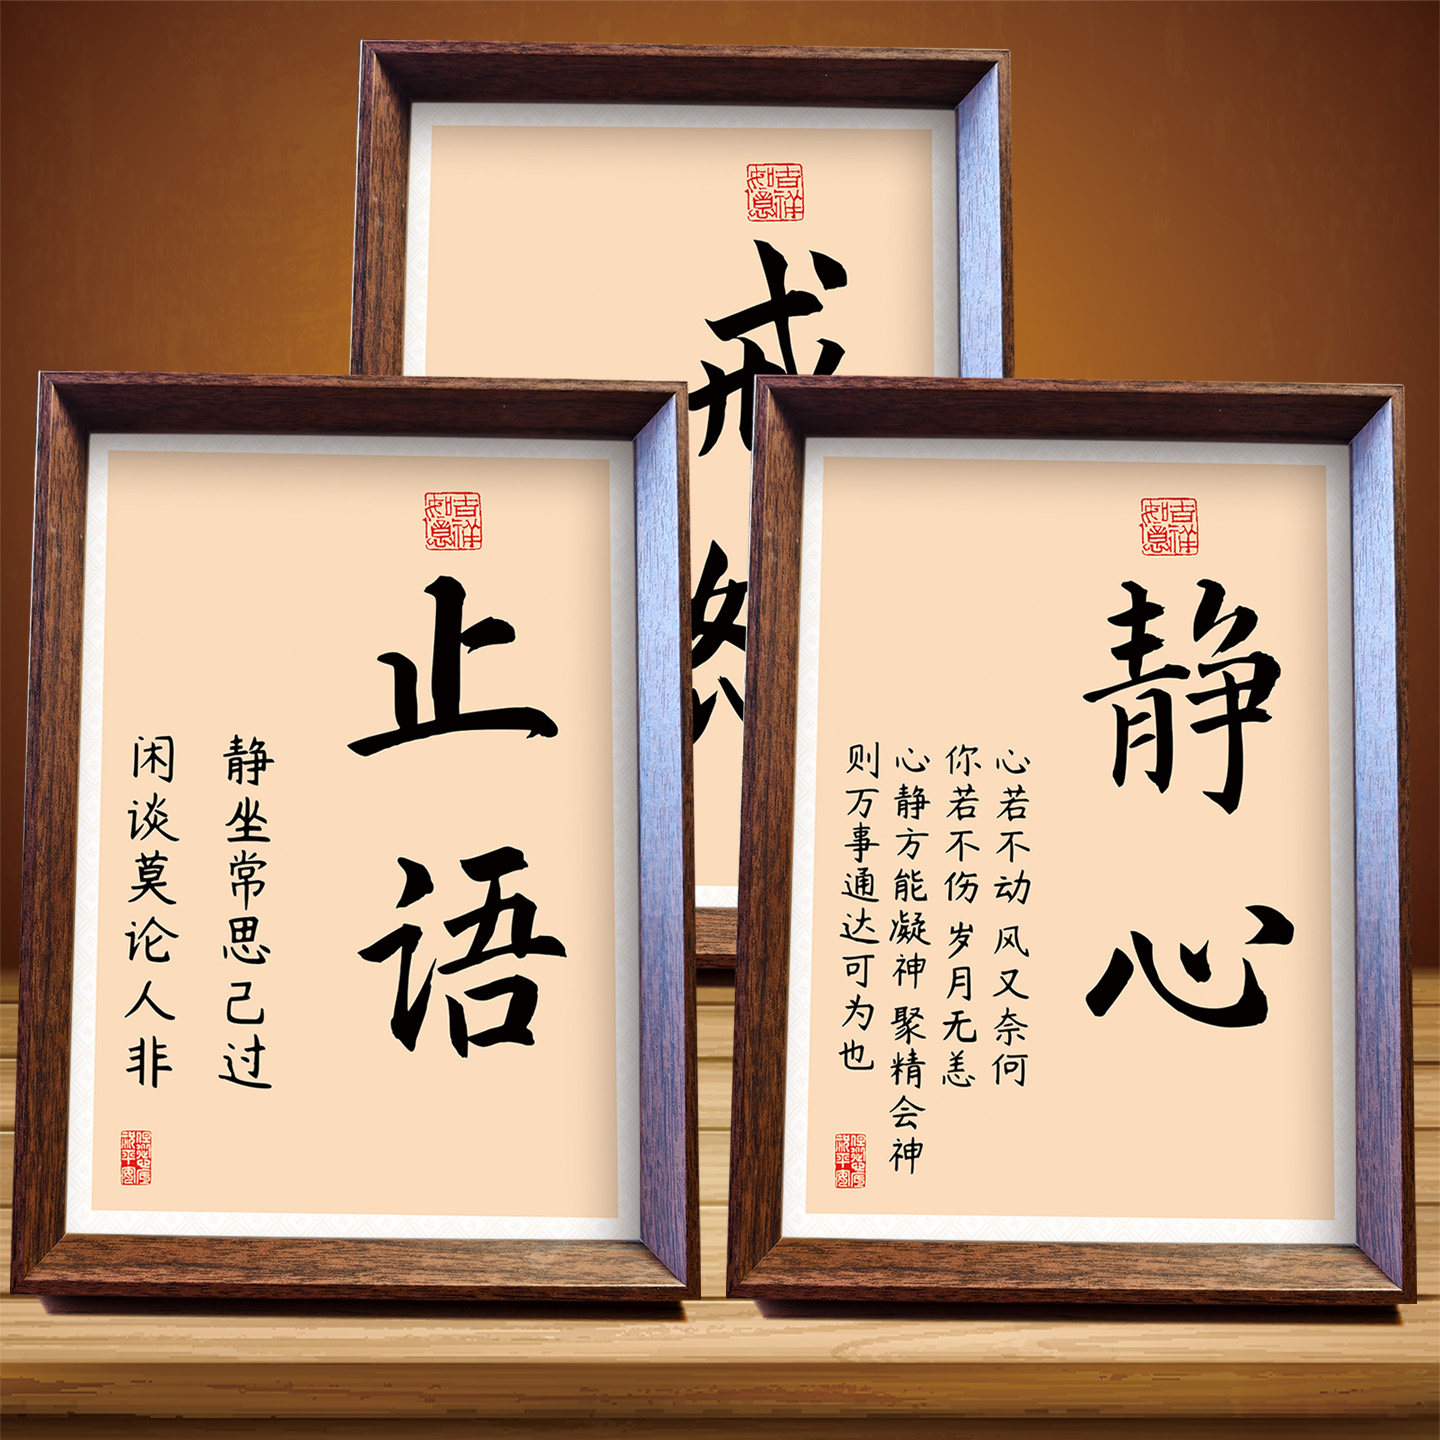 吉祥如意
戒
怒
吉祥如意
止语
静坐常思己过
闲谈莫论人非
吉祥如意
静心
心若不动 风又奈何
你若不伤 岁月无恙
心静方能凝神 聚精会神
则万事通达可为也